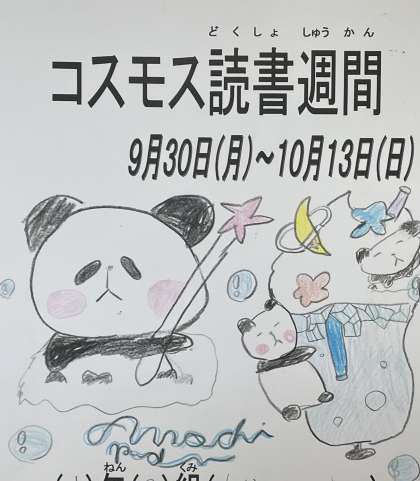 どくしょ しゅうかん
コスモス読書週間
9月30日(月)~10月13日(日)
Mochi
ねん くみ
年 組